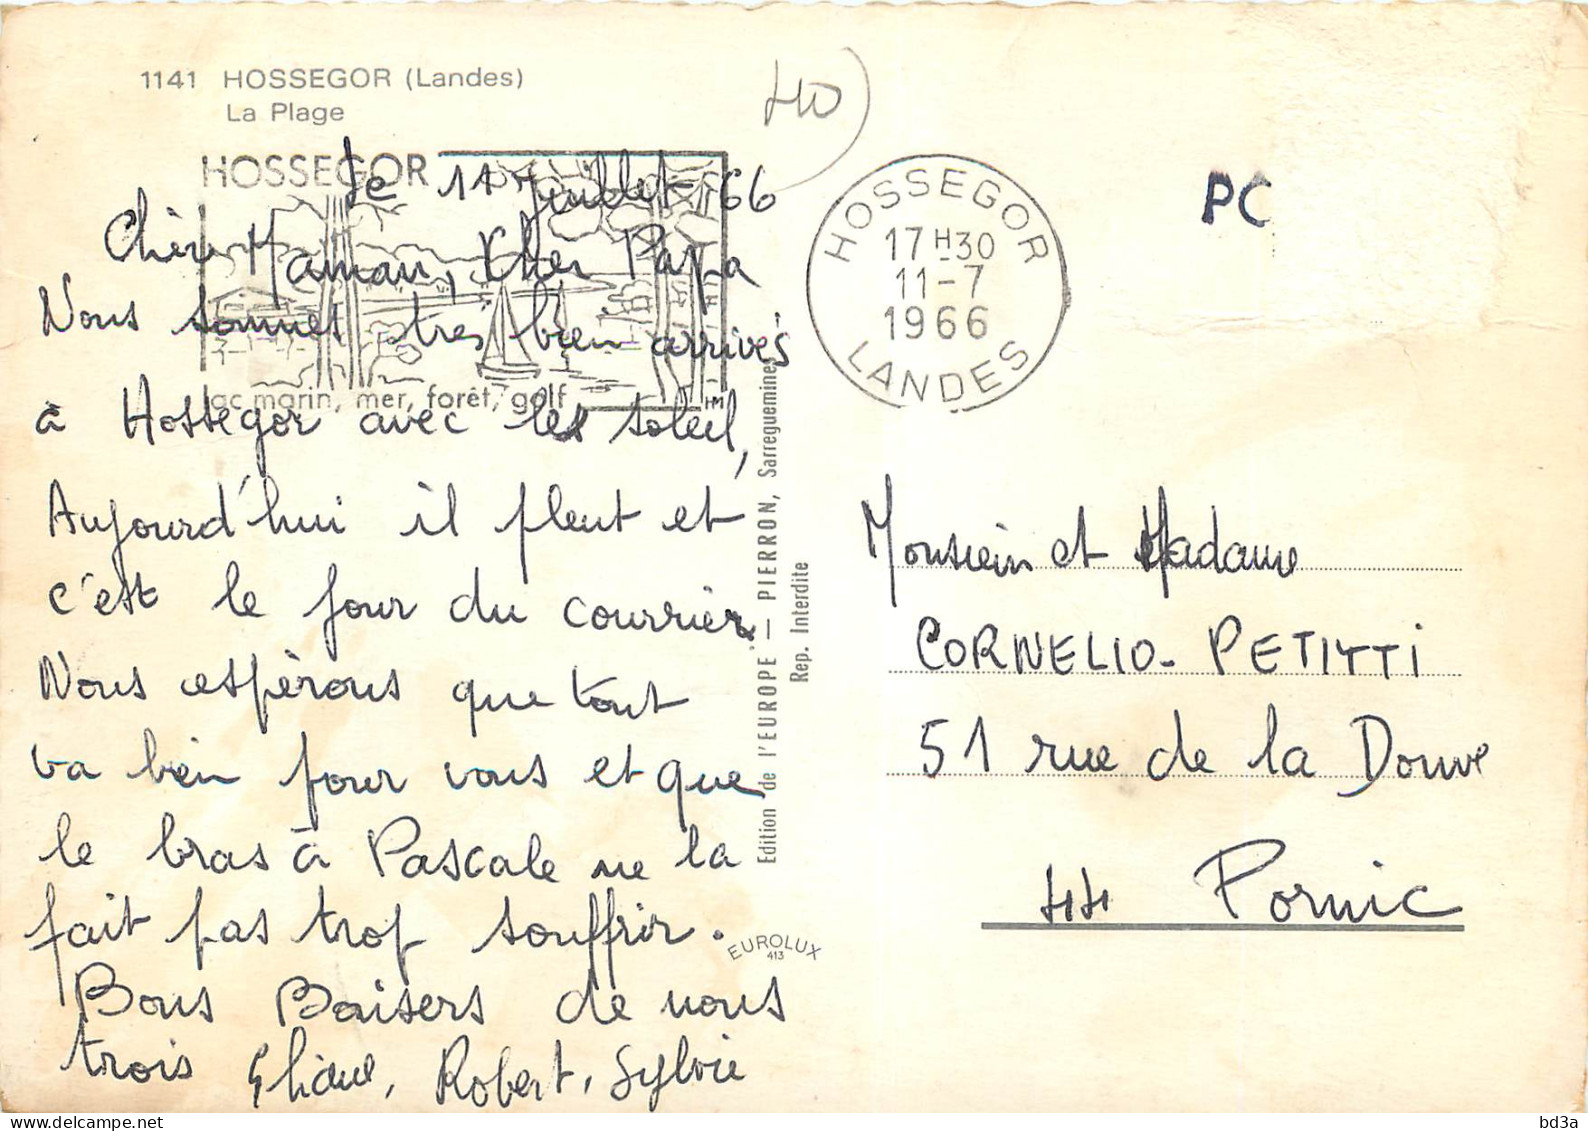 1141 HOSSEGOR (Landes)
La Plage
40
HOSSEGOR
lac marin, mer, forêt, golf
HOSSEGOR
17H30
11-7
1966
LANDES
PC
le 11 juillet 66
Chère Maman, Cher Papa
Nous sommes très bien arrivés
à Hossegor avec le soleil,
Aujourd'hui il pleut et
c'est le jour du courrier.
Nous espèrons que tout
va bien pour vous et que
le bras à Pascale ne la
fait pas trop souffrir.
Bons Baisers de nous
trois Eliane, Robert, Sylvie
Edition de l'EUROPE — PIERRON, Sarreguemines
Rep. Interdite
EUROLUX
413
Monsieur et Madame
CORNELIO-PETITTI
51 rue de la Douve
44 Pornic
bd3a